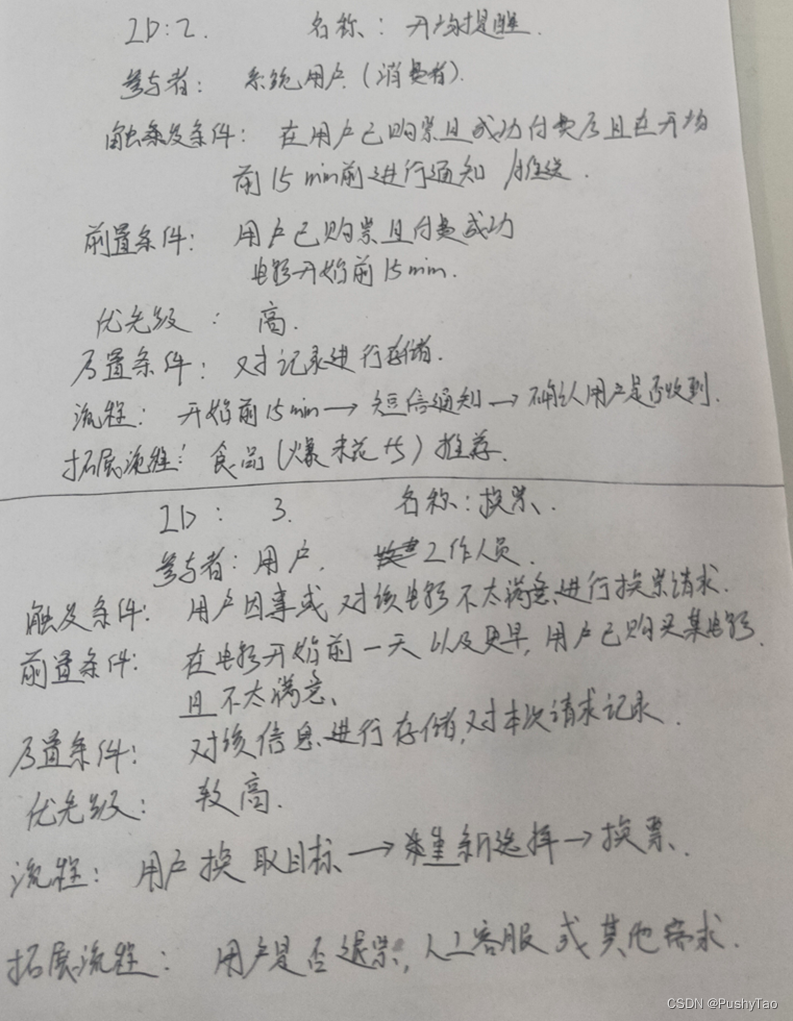 ID:2. 名称：开场提醒.
参与者： 系统用户（消费者）.
触发条件： 在用户已购票且成功付费后且在开场
前15 min前进行通知 推送.
前置条件： 用户已购票且付费成功
电影开始前15min.
优先级： 高.
后置条件： 对记录进行存储.
流程： 开始前15min→短信通知→确认用户是否收到.
拓展流程： 食品（爆米花等）推荐.
ID： 3. 名称：换票.
参与者：用户, 工作人员.
触及条件： 用户因事或对该电影不太满意进行换票请求.
前置条件： 在电影开始前一天以及更早,用户已购买某电影
且不太满意、
后置条件： 对该信息进行存储,对本次请求记录.
优先级： 较高.
流程：用户换取目标→重新选择→换票.
拓展流程： 用户是否退票,人工客服或其他需求.
CSDN @PushyTao